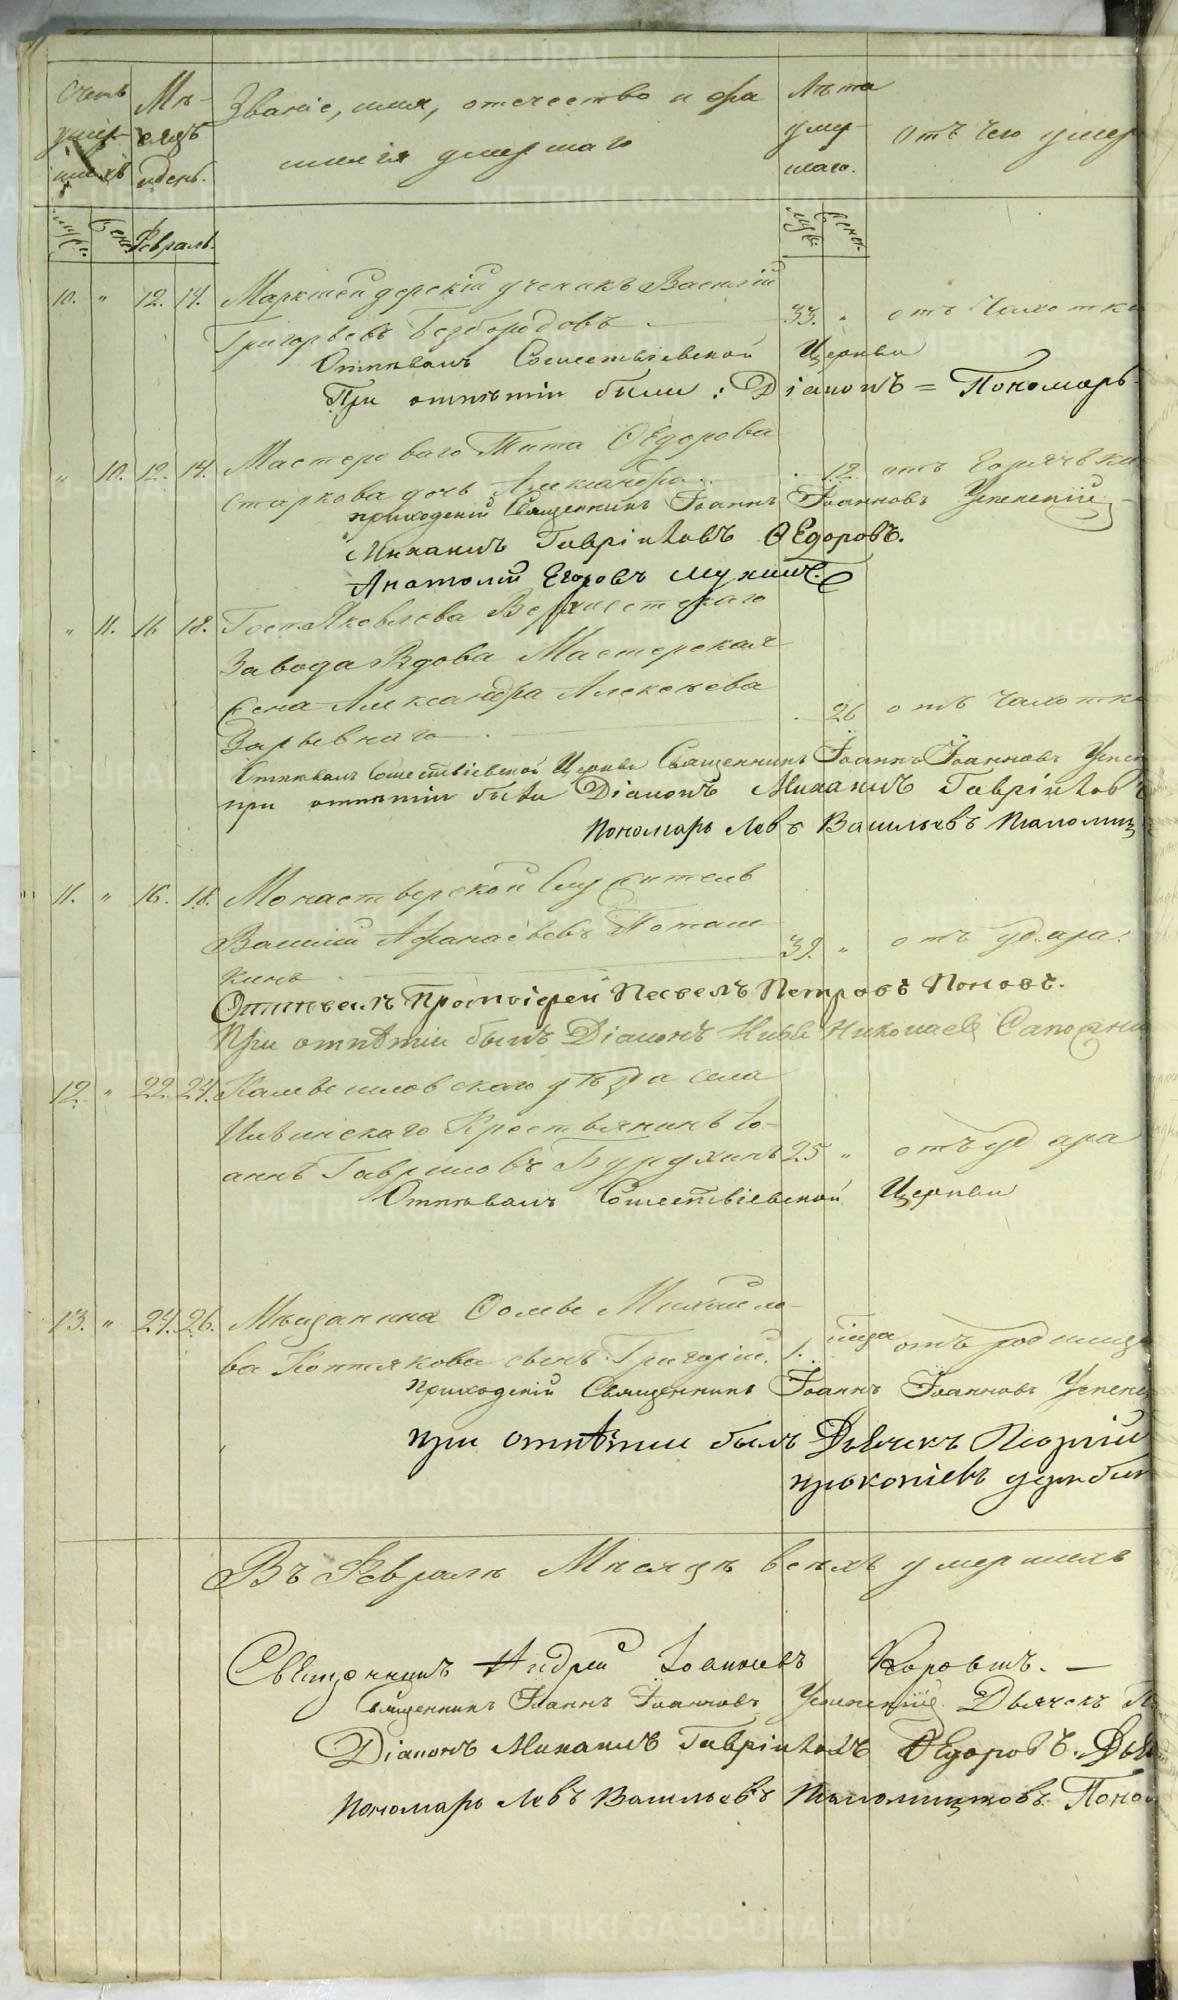 Счетъ умер- шихъ
Мѣ- сяцъ и день.
Званіе, имя, отечество и фа
милія умершаго
Лѣта умер- шаго.
отъ чего умер
муж. жен. Февраль.
муж. жен.
10. " 12. 14. Маркшейдерскій ученикъ Василій
Григорьевъ Безбородовъ 33. " отъ чахотки
Отпѣвалъ Сошествіевской Церкви
При отпѣтіи были: Діаконъ = Пономарь
" 10. 12. 14. Мастероваго Тита Ѳедорова
Старкова дочь Александра 12 отъ горячки
приходскій Священникъ Іоаннъ Іоанновъ Успенскій
Михаилъ Гавріиловъ Ѳедоровъ.
Анатолій Егоровъ Мухинъ.
" 11. 16 18. Госп. Яковлева Верхисетскаго
Завода Вдова Мастерская
жена Александра Алексѣева
26 отъ чахотки
Отпѣвалъ Сошествіевской Церкви Священникъ Іоаннъ Іоанновъ Успен
при отпѣтіи были Діаконъ Михаилъ Гавріиловъ
Пономарь Левъ Васильевъ
11. " 16. 18. Монастырской Служитель
Василій Афанасьевъ Поташ
кинъ 39. " отъ удара.
Отпѣвалъ Протоіерей Павелъ Петровъ Поповъ.
При отпѣтіи былъ Діаконъ Николаевъ
12. " 22. 24. Камышловскаго уѣзда села
Крестьянинъ Іо-
аннъ Гавриловъ Бурухинъ 25 " отъ удара
Отпѣвалъ Сошествіевской Церкви
13. " 24. 26. Мѣщанина Ѳомы Михайло-
ва Коптякова сынъ Григорій. 1. года отъ родимца
приходскій Священникъ Іоаннъ Іоанновъ Успенс
при отпѣтіи былъ Дьячекъ Георгій
прокопіевъ
Въ Февралѣ Мѣсяцѣ всѣхъ умершихъ
Священникъ Андрей Іоанновъ Коровинъ. —
Священникъ Іоаннъ Іоанновъ Успенскій Дьячекъ
Діаконъ Михаилъ Гавріиловъ Ѳедоровъ. Дья
Пономарь Левъ Васильевъ Поно
METRIKI.GASO-URAL.RU